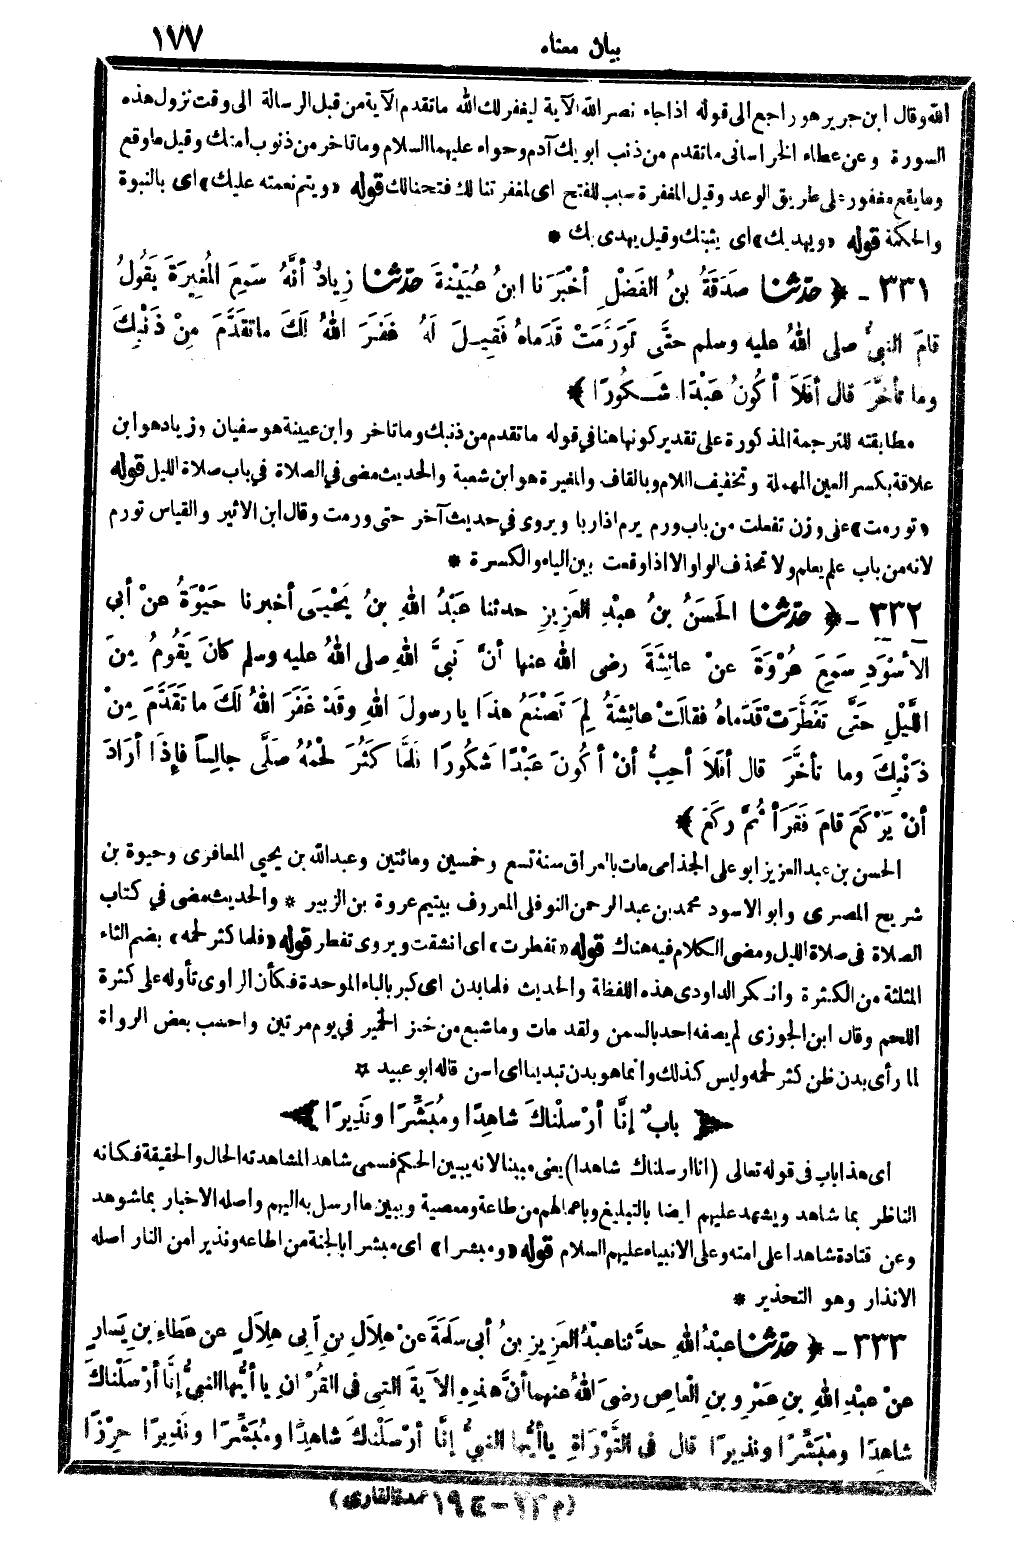 بيان معناه ١٧٧
الله وقال ابن جرير هو راجع الى قوله اذا جاء نصر الله الآية ليغفر لك الله ما تقدم الآية من قبل الرسالة الى وقت نزول هذه
السورة وعن عطاء الخراسانى ما تقدم من ذنب ابويك آدم وحواء عليهما السلام وما تأخر من ذنوب امتك وقيل ما وقع
وما يقع مغفور على طريق الوعد وقيل المغفرة سبب للفتح اى لمغفرتنا لك فتحنا لك قوله «ويتم نعمته عليك» اى بالنبوة
والحكمة قوله «ويهديك» اى يثبتك وقيل يهدى بك *
٣٣١ - ﴿ حدّثنا صَدَقَةُ بنُ الفَضْلِ أخْبَرَنا ابنُ عُيَيْنَةَ حدّثنا زِيادٌ أنَّهُ سَمِعَ المُغِيرَةَ يَقُولُ
قامَ النبيُّ صلى اللهُ عليه وسلم حتَّى تَوَرَّمَتْ قَدَماهُ فَقِيلَ لَهُ غَفَرَ اللهُ لَكَ ما تقَدَّمَ مِنْ ذَنْبِكَ
وما تأخَّرَ قال أفَلاَ أكُونُ عَبْدًا شَكُورًا ﴾
مطابقته للترجمة المذكورة على تقدير كونها هنا في قوله ما تقدم من ذنبك وما تأخر وابن عيينة هو سفيان وزياد هو ابن
علاقة بكسر العين المهملة وتخفيف اللام وبالقاف والمغيرة هو ابن شعبة والحديث مضى في الصلاة في باب صلاة الليل قوله
«تورمت» على وزن تفعلت من باب ورم يرم اذا ربا ويروى في حديث آخر حتى ورمت وقال ابن الاثير والقياس تورم
لانه من باب علم يعلم ولا تحذف الواو الا اذا وقعت بين الياء والكسرة *
٣٣٢ - ﴿ حدّثنا الحَسَنُ بنُ عبْدِ العَزِيزِ حدثنا عَبْدُ اللهِ بنُ يَحْيَى أخبرنا حَيْوَةُ عنْ أبي
الأسْوَدِ سَمِعَ عُرْوَةَ عنْ عائِشَةَ رضى الله عنها أنَّ نَبيَّ اللهِ صلى اللهُ عليه وسلم كانَ يَقُومُ مِنَ
اللَّيْلِ حَتَّى تَفَطَّرَتْ قَدَماهُ فقالَتْ عائِشةُ لِمَ تَصْنَعُ هذَا يا رسولَ اللهِ وقَدْ غَفَرَ اللهُ لَكَ ما تَقَدَّمَ مِنْ
ذَنْبِكَ وما تأخَّرَ قال أفَلاَ أُحِبُّ أنْ أكُونَ عَبْدًا شَكُورًا فَلَمَّا كَثُرَ لَحْمُهُ صَلَّى جالِساً فإِذَا أرَادَ
أنْ يَرْكَعَ قامَ فَقَرَأَ ثُمَّ رَكَعَ ﴾
الحسن بن عبد العزيز ابو على الجذامى مات بالعراق سنة تسع وخمسين ومائتين وعبد الله بن يحيى المعافرى وحيوة بن
شريح المصرى وابو الاسود محمد بن عبد الرحمن النوفلى المعروف بيتيم عروة بن الزبير * والحديث مضى في كتاب
الصلاة في صلاة الليل ومضى الكلام فيه هناك قوله «تفطرت» اى انشقت ويروى تفطر قوله «فلما كثر لحمه» بضم الثاء
المثلثة من الكثرة وانكر الداودى هذه اللفظة والحديث فلما بدن اى كبر بالباء الموحدة فكأن الراوى تأوله على كثرة
اللحم وقال ابن الجوزى لم يصفه احد بالسمن ولقد مات وما شبع من خبز الخمير في يوم مرتين واحسب بعض الرواة
لما رأى بدن ظن كثر لحمه وليس كذلك وانما هو بدن تبدينا اى اسن قاله ابو عبيد *
﴿ بابٌ إنَّا أرْسَلْناكَ شاهِدًا ومُبَشِّرًا ونَذِيرًا ﴾
اى هذا باب في قوله تعالى (انا ارسلناك شاهدا) يعنى مبينا لانه يبين الحكم فسمى شاهدا لمشاهدته الحال والحقيقة فكانه
الناظر بما شاهد ويشهد عليهم ايضا بالتبليغ وباعمالهم من طاعة ومعصية ويبين ما أرسل به اليهم واصله الاخبار بما شوهد
وعن قتادة شاهدا على امته وعلى الانبياء عليهم السلام قوله «ومبشرا» اى مبشرا بالجنة من اطاعه ونذيرا من النار اصله
الانذار وهو التحذير *
٣٣٣ - ﴿ حدّثنا عبْدُ اللهِ حدَّثنا عبْدُ العَزِيزِ بنُ أبي سَلَمَةَ عنْ هِلاَلِ بنِ أبي هِلاَلٍ عن عطاءِ بنِ يَسارٍ
عنْ عبْدِ اللهِ بنِ عَمْرِو بنِ العاصِ رضىَ اللهُ عنهما أنَّ هذِهِ الآيَةَ التي في القُرْآنِ يا أيُّها النبيُّ إنَّا أرْسَلْناكَ
شاهِدًا ومُبَشِّرًا ونذِيرًا قال في التَّوْرَاةِ يا أيُّها النبيُّ إنَّا أرْسَلْناكَ شاهِدًا ومُبَشِّرًا ونَذِيرًا حِرْزًا
(م ٢٣ - ج ١٩ عمدة القاري)